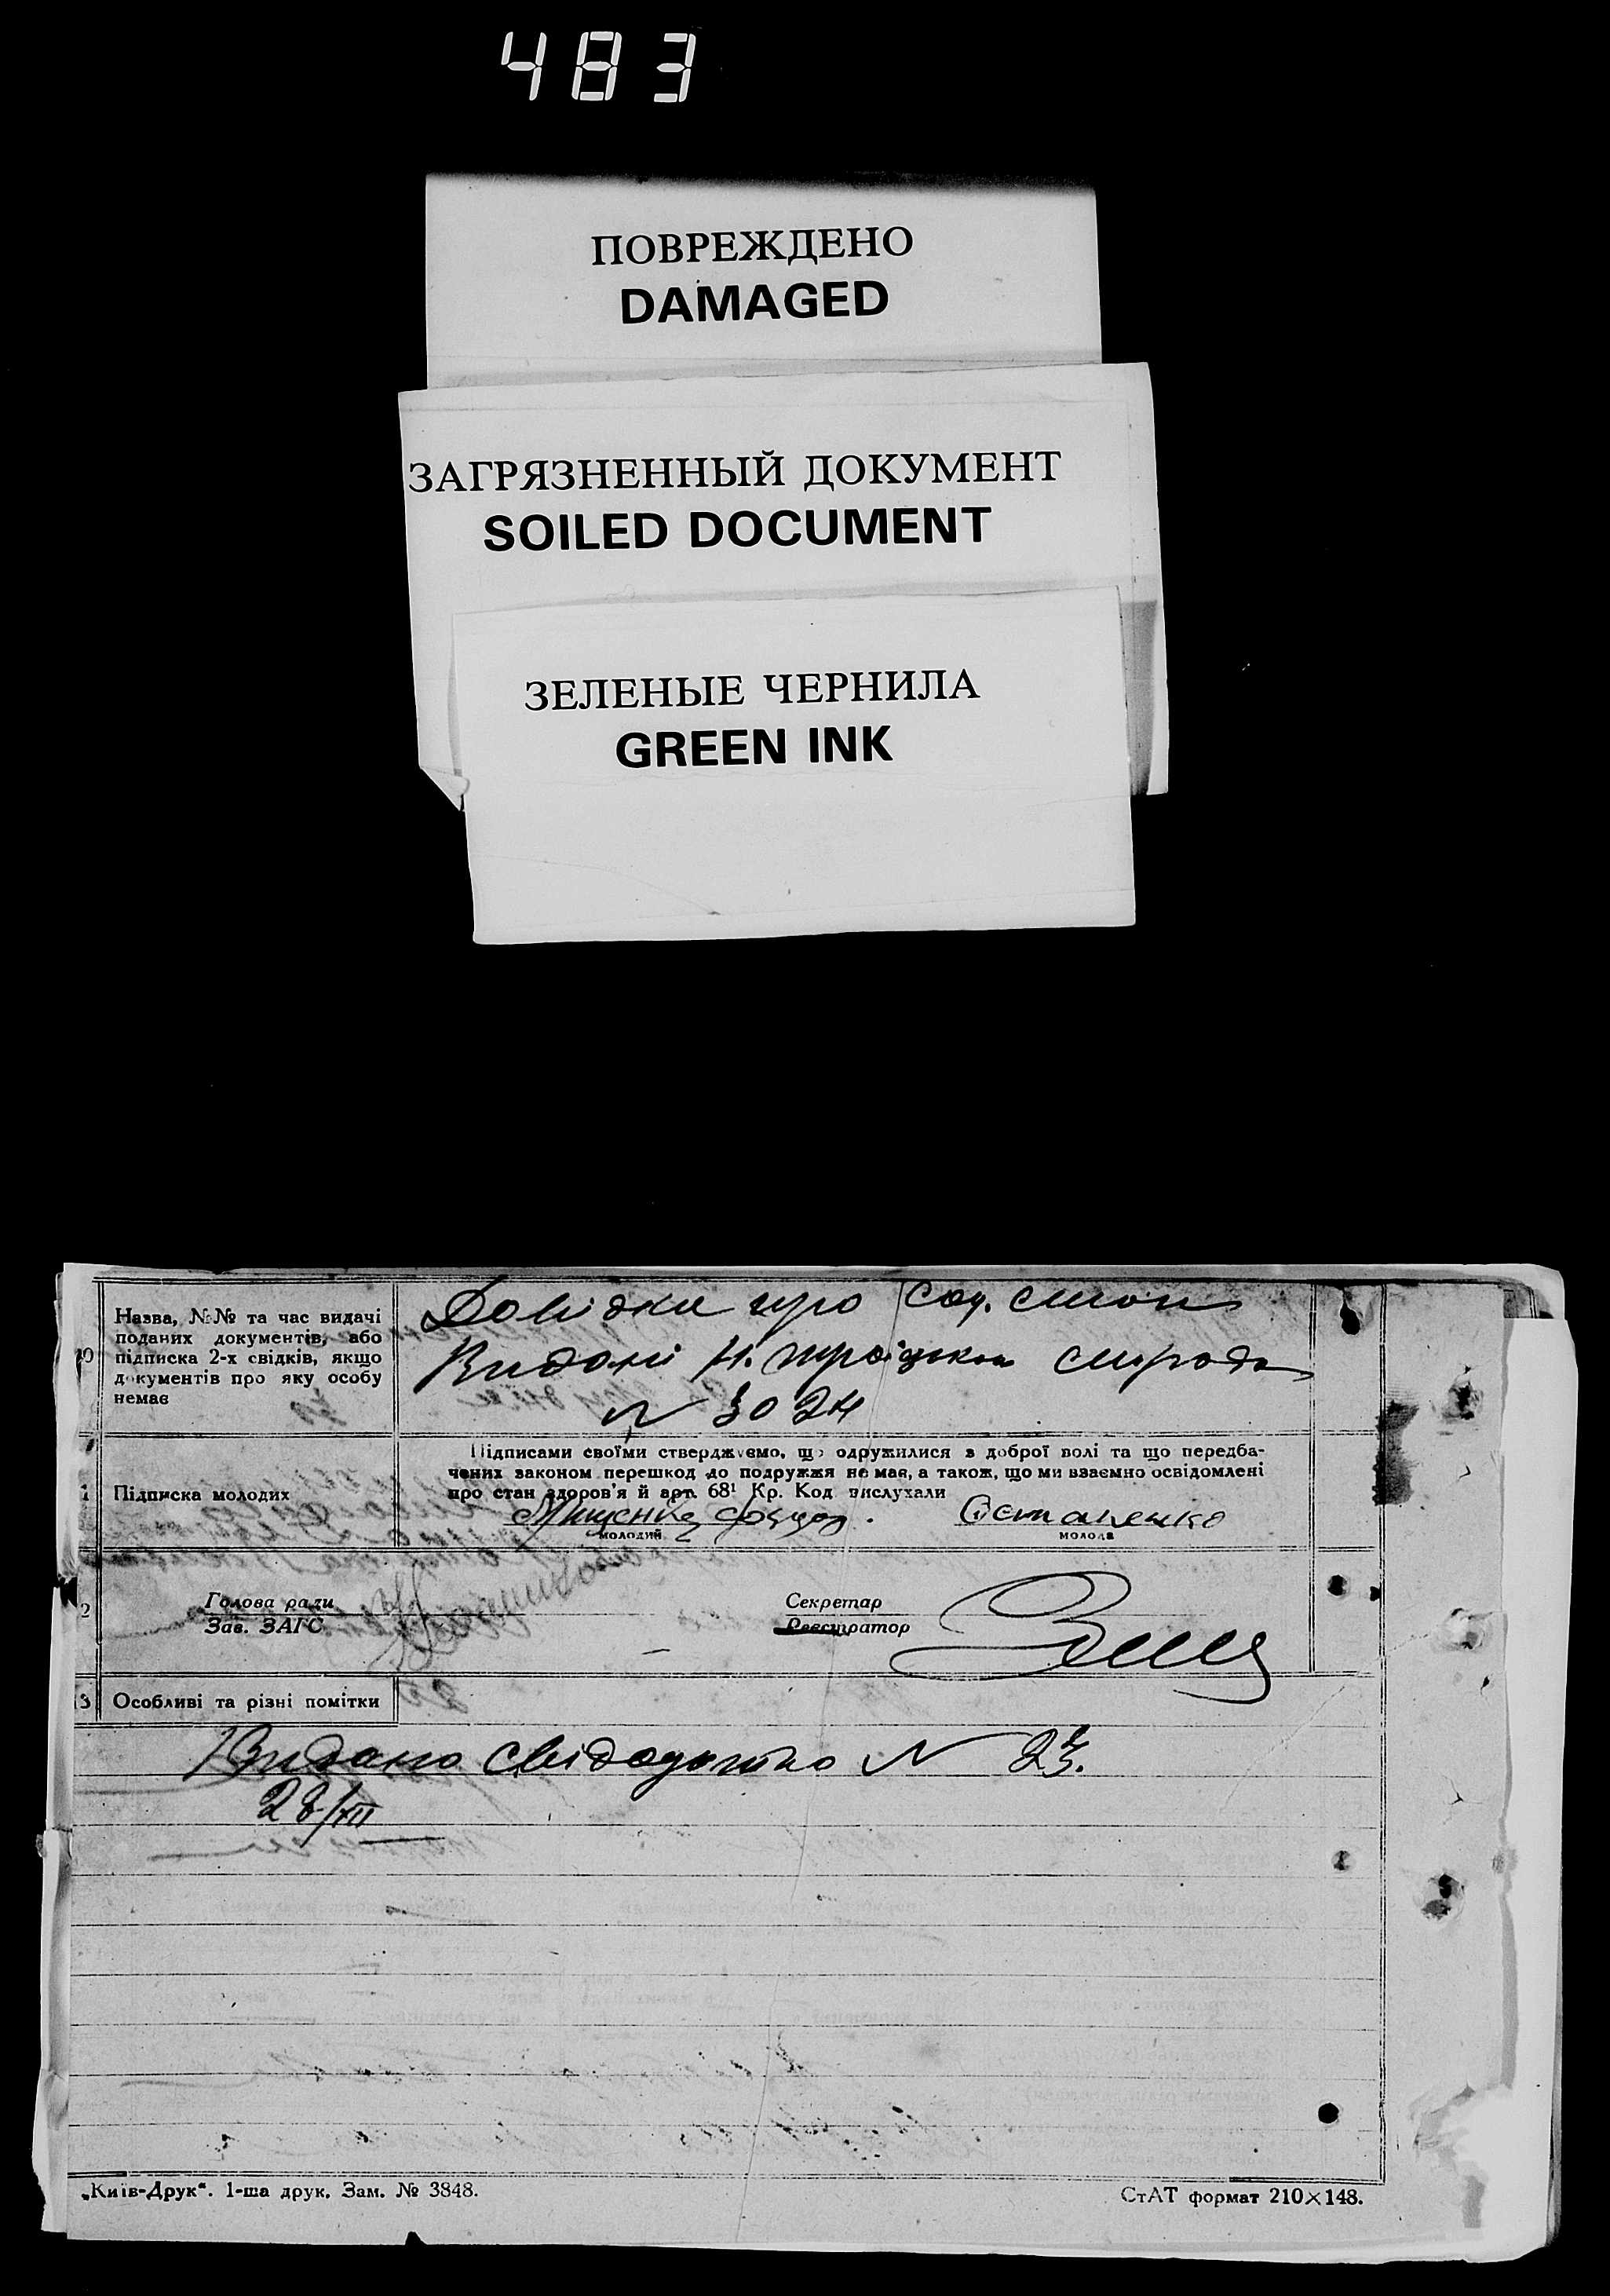 483
ПОВРЕЖДЕНО
DAMAGED
ЗАГРЯЗНЕННЫЙ ДОКУМЕНТ
SOILED DOCUMENT
ЗЕЛЕНЫЕ ЧЕРНИЛА
GREEN INK
Назва, №№ та час видачі
поданих документів, або
підписка 2-х свідків, якщо
документів про яку особу
немає
Довідки про соц. стан
Видані Н. Троіцькою с/радою
N 30 24
Підписка молодих
Підписами своїми стверджуємо, що одружилися з доброї волі та що передба-
чених законом перешкод до подружжя не має, а також, що ми взаємно освідомлені
про стан здоров'я й арт. 68¹ Кр. Код вислухали
Мищенко
Остапенко
молодий
молода
2
Голова ради
Зав. ЗАГС
Секретар
Реєстратор
3
Особливі та різні помітки
Видано свідоцтво N 23.
28/XII
„Київ-Друк“. 1-ша друк. Зам. № 3848.
СтАТ формат 210×148.